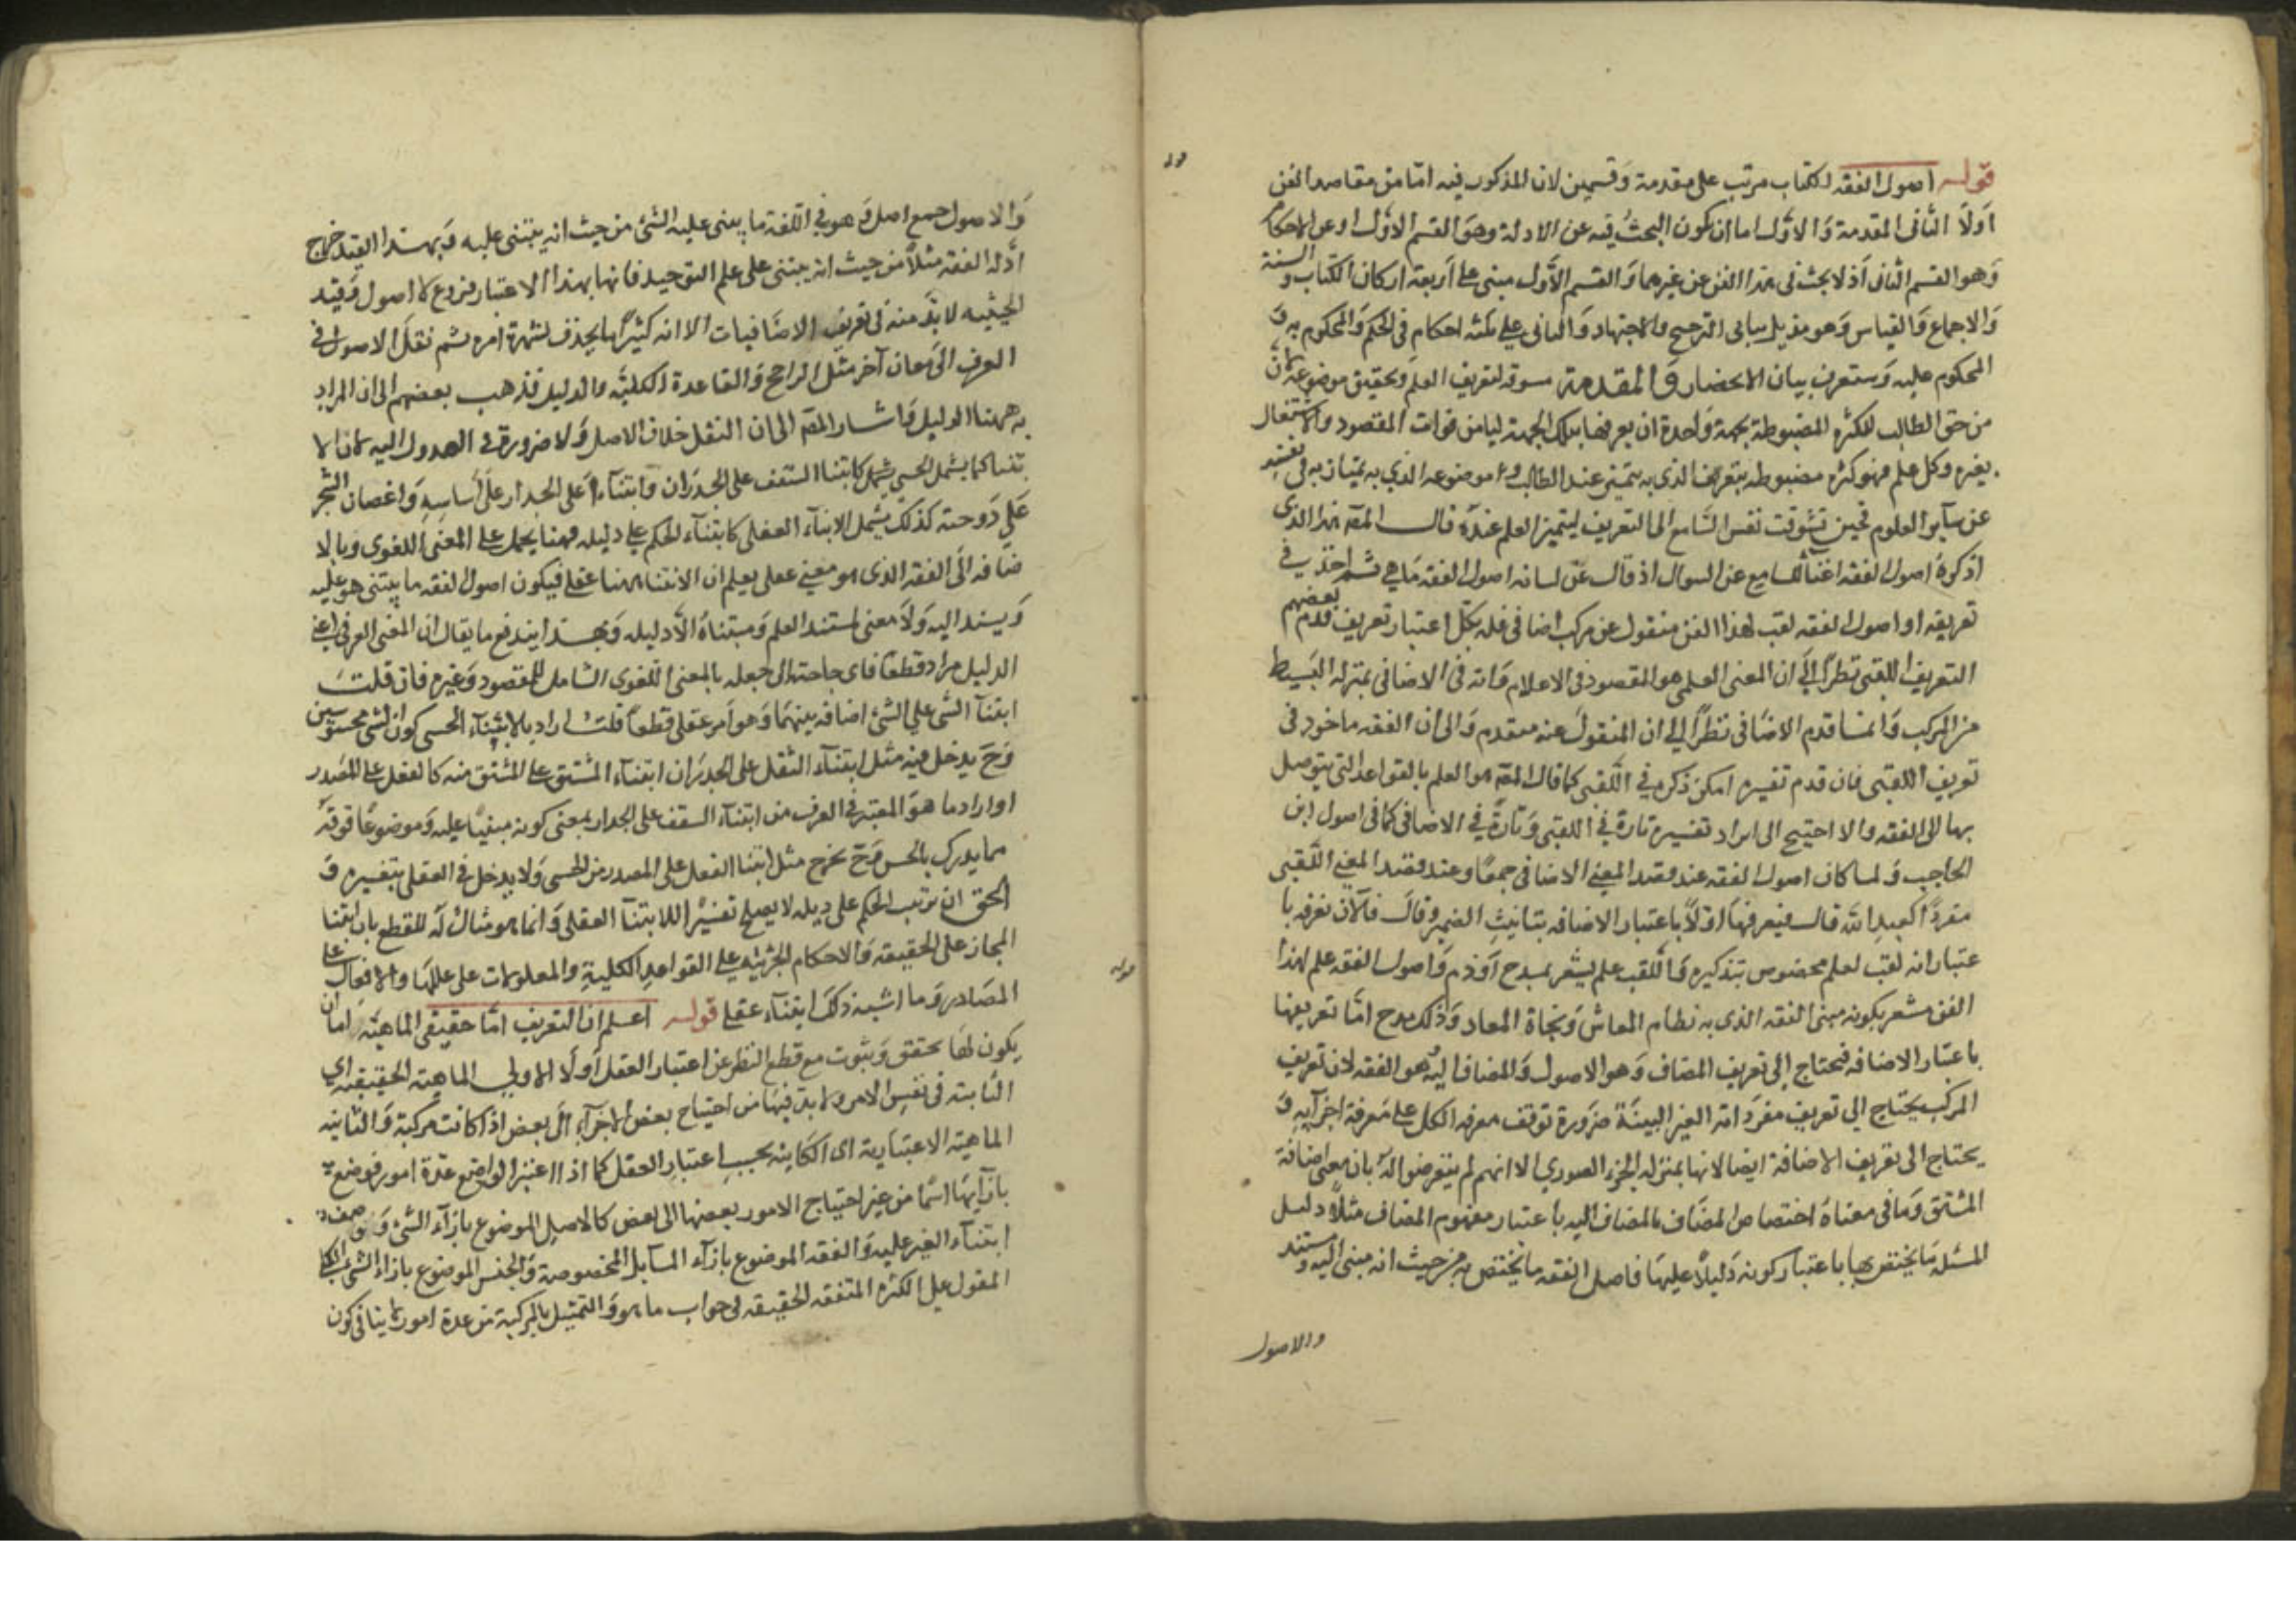 قوله اصول الفقه الكتاب مرتب على مقدمة وَقسمين لان المذكور فيه امّا من مقاصد الفن
اوَلاَ الثانى المقدمة وَالاوّل اما ان يكون البحثُ فيه عن الادلة وهوَ القسم الاوّل او عن الاحكام
وَهو القسم الثانى اذ لا يبحث فى هذا الفن عن غيرهما وَالقسم الاَوّل مبنى على اَربعة اركان الكتاب وَالسنة
وَالاجماع وَالقياس وَهو مذيل ببابى الترجيح والاجتهاد وَالثانى على ثلثه احكام فى الحكم وَالمحكوم به وَ
المحكوم عليه وَستعرف بيان الانحصار وَالمقدمة مسوقة لتعريف العلم وَتحقيق موضوعه لان
من حق الطالب للكثره المضبوطة بجهة وَاحدة ان يعرفها بتلك الجهة ليامن فوات المقصود والاشتغال
بغيره وكل علم فهو كثره مضبوطه بتعريفه الذى به يتميز عند الطالب و موضوعه الذي به يمتاز به فى نفسه
عن سآير العلوم فحين تشوقت نفس السَامع الى التعريف ليتميز العلم عندَهُ قال المصه هذا الذى
اذكرهُ اصول الفقه اغنآ للسامع عن السوال اذ قال عَن لسانه اصول الفقه مَا هي ثم اخذ في
تعريفه او اصول الفقه لقب لهذا الفن منقول عن مركب اضافى فله بكل اعتبار تعريف قدم بعضهم
التعريف اللقبى نظراً الىَ ان المعنى العلمى هو المقصود فى الاعلام وَانه فى الاضافى بمنزله البَسيط
من المركب وَانما قدم الاضَافى نظراً الى ان المنقول عنه مقدم وَالى ان الفقه ماخود فى
تعريف اللقبى فان قدم تفسيره امكن ذكره في اللقبى كما قال المصه هو العلم بالقواعد التى يتوصل
بها الى الفقه والا احتيج الى ايراد تفسيره تارة فى اللقبى وَتارةً فى الاضافى كما فى اصول ابن
الحاجب وَلما كان اصول الفقه عند قصد المعنى الاضافى جمعًا وعند قصد المعنى اللقبى
مفردًا كعبد الله قال فيعرفها اوّلاً باعتبار الاضافه بتانيثِ الضمير وقالَ فالآن نعرفه با
عتبار انه لقب لعلم مخصوص بتذكيره وَاللقب علم يشعر بمدح اَو ذم وَاصول الفقه علم لهذا
الفن مشعر بكونه مبنى الفقه الذى به نظام المعاش وَنجاة المعاد وَذلك مدح امّا تعريفها
باعتبار الاضافه فيحتاج الى تعريف المضاف وَهو الاصول وَالمضاف اليه وهو الفقه لان تعريف
المركب يحتاج الى تعريف مفرَداته الغير البينَة ضرَورة توقف معرفه الكل على مَعرفة اجزآيه وَ
يحتاج الى تعريف الاضافة ايضا لانها بمنزله الجزء الصوري الا انهم لم يتعرضوا لهُ بان معنى اضافة
المشتق وَمَا فى معناهُ اختصاص المضَاف بالمضاف اليه باعتبار مفهوم المضاف مثلاً دليل
المسئله مَا يختص بها باعتبار كونه دَليلاً عليهَا فاصل الفقه ما يختص به من حيث انه مبنى اليه و مستند
والاصول
وَالاصول جمع اصل وَهو فى اللغة ما يبنى عليه الشئ من حيث انه يبتنى عليه وَبهذا القيد خرج
ادّله الفقه مثلاً من حيث انه يبتنى على علم التوحيد فانها بهذا الاعتبار فروع لا اصول وَقيد
الحيثيه لا بدّ منه فى تعريف الاضَافيات الا انه كثيراً ما يحذف لشهرة امره ثم نقلَ الاصول فى
العرف الىَ معان آخر مثل الراجح وَالقاعدة الكليّة والدليل فذهب بعضهم الى ان المراد
به ههنا الدليل وَاشار المصه الى ان النقل خلاف الاصل وَلا ضرورة فى العدول اليه لان الا
بتنا كما يشمل الحسى كابتنا السقف على الجدرَان وَابتنآء اَعلى الجدار على اَساسِهِ وَاغصان الشجر
عَلى دَوحته كذلك يشمل الابنآء العقلى كابتنآء الحكم على دليله فههنا يحمل على المعنى اللغوى وَبالا
ضافه الىَ الفقه الذى هو معنى عقلى يعلم ان الابتنا ههنا عقلى فيكون اصول الفقه ما يبتنى هو عليه
وَيستند اليه وَلاَ معنى لمستند العلم وَمبتناهُ الاّ دليله وَبهذا يندفع ما يقال ان المعنى العرفى اعنى
الدليل مراد قطعًا فاى حاجة الى جعله بالمعنى اللغوى الشامل للمقصود وَغيره فان قلتَ
ابتنآ الشى على الشئ اضافه بينهمَا وَهو اَمر عقلى قطعاً قلتُ اراد بالابتنآء الحسى كون الشئ محسوسين
وَحَ يدخل فيه مثل ابتنآء الثقل على الجدرَان ابتنآء المشتق على المشتق منه كالفعل على المصَدر
اوارا دما هوَ المعتبر فى العرف من ابتنآء السقف على الجدار بمعنى كونه مبنيًّا عليه وَموضوعًا فوقهُ
مما يدرك بالحس وَحَ يخرج مثل ابتنا الفعل على المصدر من الحسى وَلا يدخل فى العقلى بتفسيره وَ
الحق ان ترتيب الحكم على دليله لا يصلح تفسيرًا للابتنآ العقلى وَانما هو مثال لَه للقطع بان ابتنا
المجاز على الحقيقه وَالاحكام الجزئيه على القواعدِ الكليةِ والمعلولات على عللهَا والافعال على
المصَادر وَما اشبه ذلك ابتنآء عقلى قوله اعلم ان التعريف امّا حقيقى الماهيّة امّا ان
يكون لهَا تحقق وَثبوت مع قطع النظر عن اعتبار العقل اَو لَا الاولى الماهيّة الحقيقيه اى
الثّابته فى نفس الامر ولا بد فيهَا من احتياج بعض الاجزآء الىَ بعض اذا كانت مركبة وَالثانيه
الماهيّة الاعتبَارية اى الكَاينه بحسب اعتبارِ العقل كما اذا اعتبر الواضع عدّة امور فوضع
بازايهَا اسًما من غير احتياج الامور بعضها الى بعض كالاصل الموضوع بازآء الشئ وَ وصف
ابتنآء الغير عليه وَالفقه الموضوع بازآء المسآيل المخصوصة وَالجنس الموضوع بازاء الشئ الكلى
المقول على الكثره المتفقه الحقيقه فى جواب ما هو وَالتمثيل بالمركبة من عدة امور لا ينافى كون